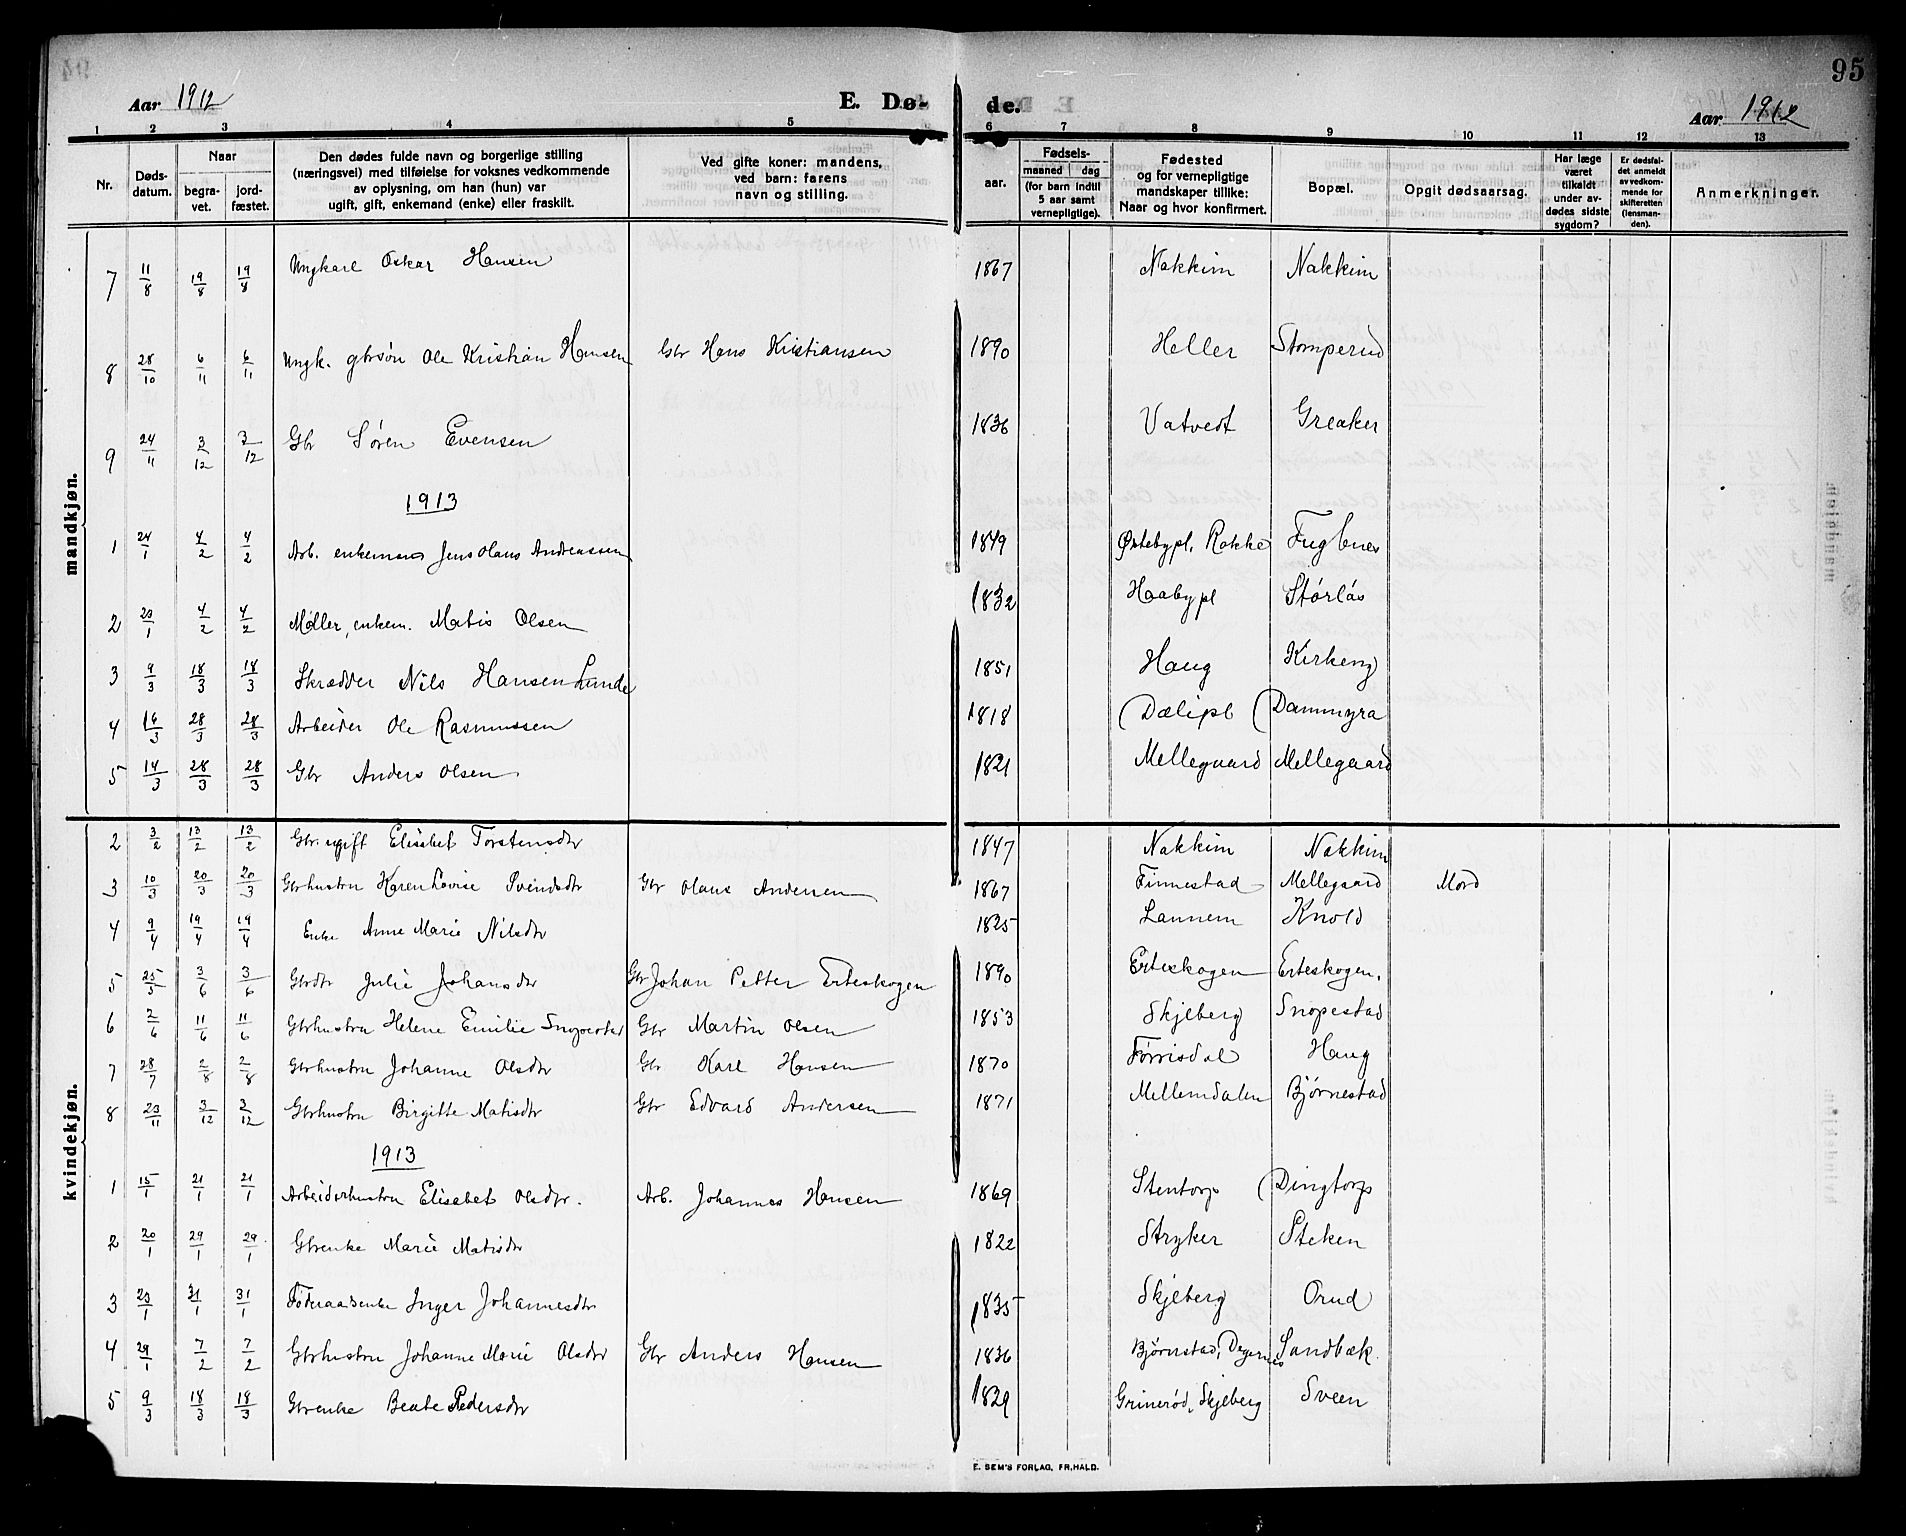 95
Aar 1912 E. Dø- de. Aar 1912
1 2 3 4 5 6 7 8 9 10 11 12 13
Nr. Døds-datum. Naar begra-vet. jord-fæstet. Den dødes fulde navn og borgerlige stilling (næringsvei) med tilføielse for voksnes vedkommende av oplysning, om han (hun) var ugift, gift, enkemand (enke) eller fraskilt. Ved gifte koner: mandens, ved barn: farens navn og stilling. aar. Fødsels- maaned dag (for barn indtil 5 aar samt vernepligtige). Fødested og for vernepligtige mandskaper tillike: Naar og hvor konfirmert. Bopæl. Opgit dødsaarsag. Har læge været tilkaldt under av-dødes sidste sygdom? Er dødsfal-det anmeldt av vedkom-mende for skifteretten (lensman-den). Anmerkninger.
mandkjøn.
7 11/8 19/8 19/8 Ungkarl Oskar Hansen 1867 Nakkim Nakkim
8 28/10 6/11 6/11 Ungk. gbrsøn Ole Kristian Hansen Gbr Hans Kristiansen 1890 Heller Stomperud
9 24/11 3/12 3/12 Gbr Søren Evensen 1836 Vatvedt Greaker
1913
1 24/1 4/2 4/2 Arb. enkeman Jens Olaus Andreassen 1849 Østebypl. Rokke Fuglenes
2 29/1 4/2 4/2 Møller, enkem. Matis Olsen 1832 Haabypl Störlös
3 9/3 18/3 18/3 Skrædder Nils Hansen Lunde 1851 Haug Kirkeng
4 19/3 28/3 28/3 Arbeider Ole Rasmussen 1818 (Dælipl (Dammyra
5 14/3 28/3 28/3 Gbr Anders Olsen 1821 Mellegaard Mellegaard
kvindekjøn.
2 3/2 13/2 13/2 Gbr. ugift Elisabet Torstensdtr 1847 Nakkim Nakkim
3 10/3 20/3 20/3 Gbrhustru Karen Lovise Svendsdtr Gbr Olaus Andersen 1867 Finnestad Mellegaard Mord
4 9/4 19/4 19/4 Enke Anne Marie Nilsdtr 1825 Lannem Knold
5 25/5 3/6 3/6 Gbrdtr Julie Johansdtr Gbr Johan Petter Erteskogen 1890 Erteskogen Erteskogen.
6 2/6 11/6 11/6 Gbrhustru Helene Emilie Gbr Martin Olsen 1853 Skjeberg Snopestad
7 28/7 2/8 2/8 Gbrhustru Johanne Olsdtr Gbr Karl Hansen 1870 Tørrisdal Haug
8 23/11 3/12 3/12 Gbrhustru Birgitte Matisdtr Gbr Edvard Andersen 1871 Mellemdalen Bjørnestad
1913
1 15/1 21/1 21/1 Arbeiderhustru Elisabet Olsdtr. Arb. Johannes Hansen 1869 Stentorp (Dingtorp
2 20/1 29/1 29/1 Gbrenke Marie Matisdtr 1822 Stryker Steken
3 23/1 31/1 31/1 Føderaadsenke Inger Johannesdtr 1835 Skjeberg Orud
4 29/1 7/2 7/2 Gbrhustru Johanne Marie Olsdtr Gbr Anders Hansen 1836 Bjørnstad, Degernes Sandbæk.
5 9/3 18/3 18/3 Gbrenke Beate Pedersdtr 1829 Grinerød, Skjeberg Sveen
E. SEM'S FORLAG, FR.HALD.